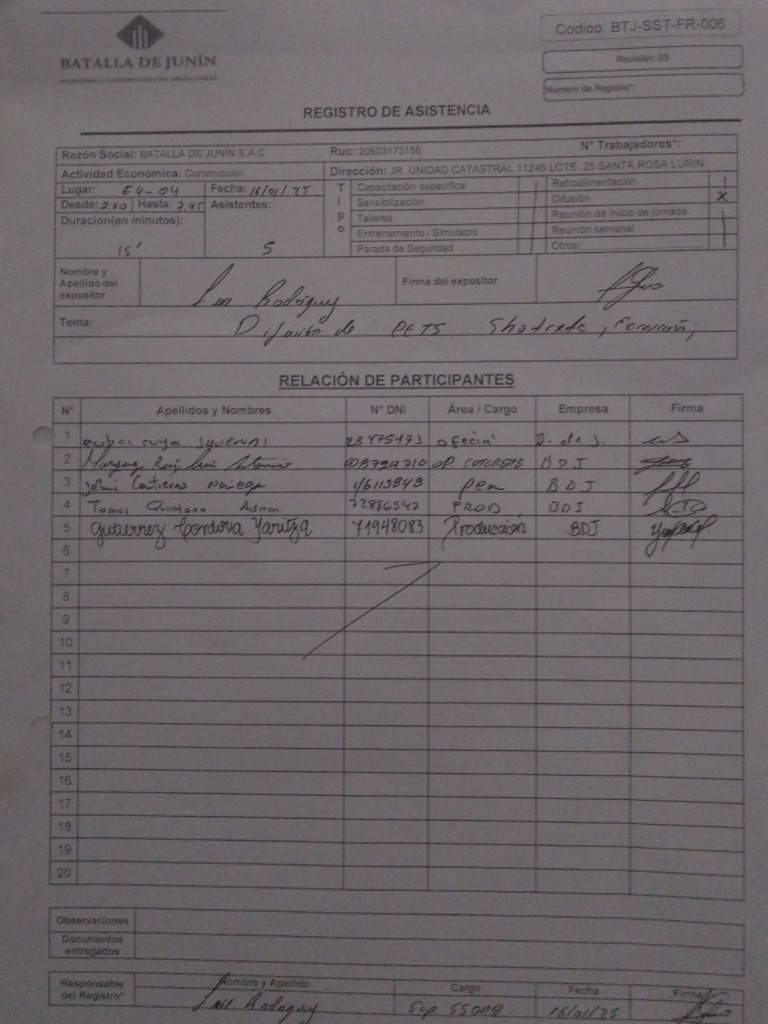 BATALLA DE JUNÍN
Codigo: BTJ-SST-FR-006
Revisión: 03
Número de Registro*:
REGISTRO DE ASISTENCIA
Razón Social: BATALLA DE JUNÍN S.A.C Ruc: 20603173156 N° Trabajadores*:
Actividad Económica: Construcción Dirección: JR. UNIDAD CATASTRAL 11246 LOTE. 25 SANTA ROSA LURIN
Lugar: E4-04 Fecha: 16/01/25 Tipo Capacitación especifica Retroalimentación
Desde: 2:30 Hasta: 2:45 Asistentes: Sensibilización Difusión X
Duración(en minutos): Talleres Reunión de inicio de jornada
15' 5 Entrenamiento / Simulacro Reunión semanal
Parada de Seguridad Otros:
Nombre y Apellido del expositor Luis Rodriguez Firma del expositor
Tema: Difusión de PETS
RELACIÓN DE PARTICIPANTES
N° Apellidos y Nombres N° DNI Área / Cargo Empresa Firma
1 28475473 B. de J.
2 OP. BDJ
3 Contreras 46113848 peon BDJ
4 Tomas Quintana 72886547 PROD BDJ
5 Gutierrez Cordova Yaritza 71948083 Producción BDJ
6
7
8
9
10
11
12
13
14
15
16
17
18
19
20
Observaciones
Documentos entregados
Responsable del Registro* Nombre y Apellido Cargo Fecha Firma
Luis Rodriguez Sup SSOMA 16/01/25